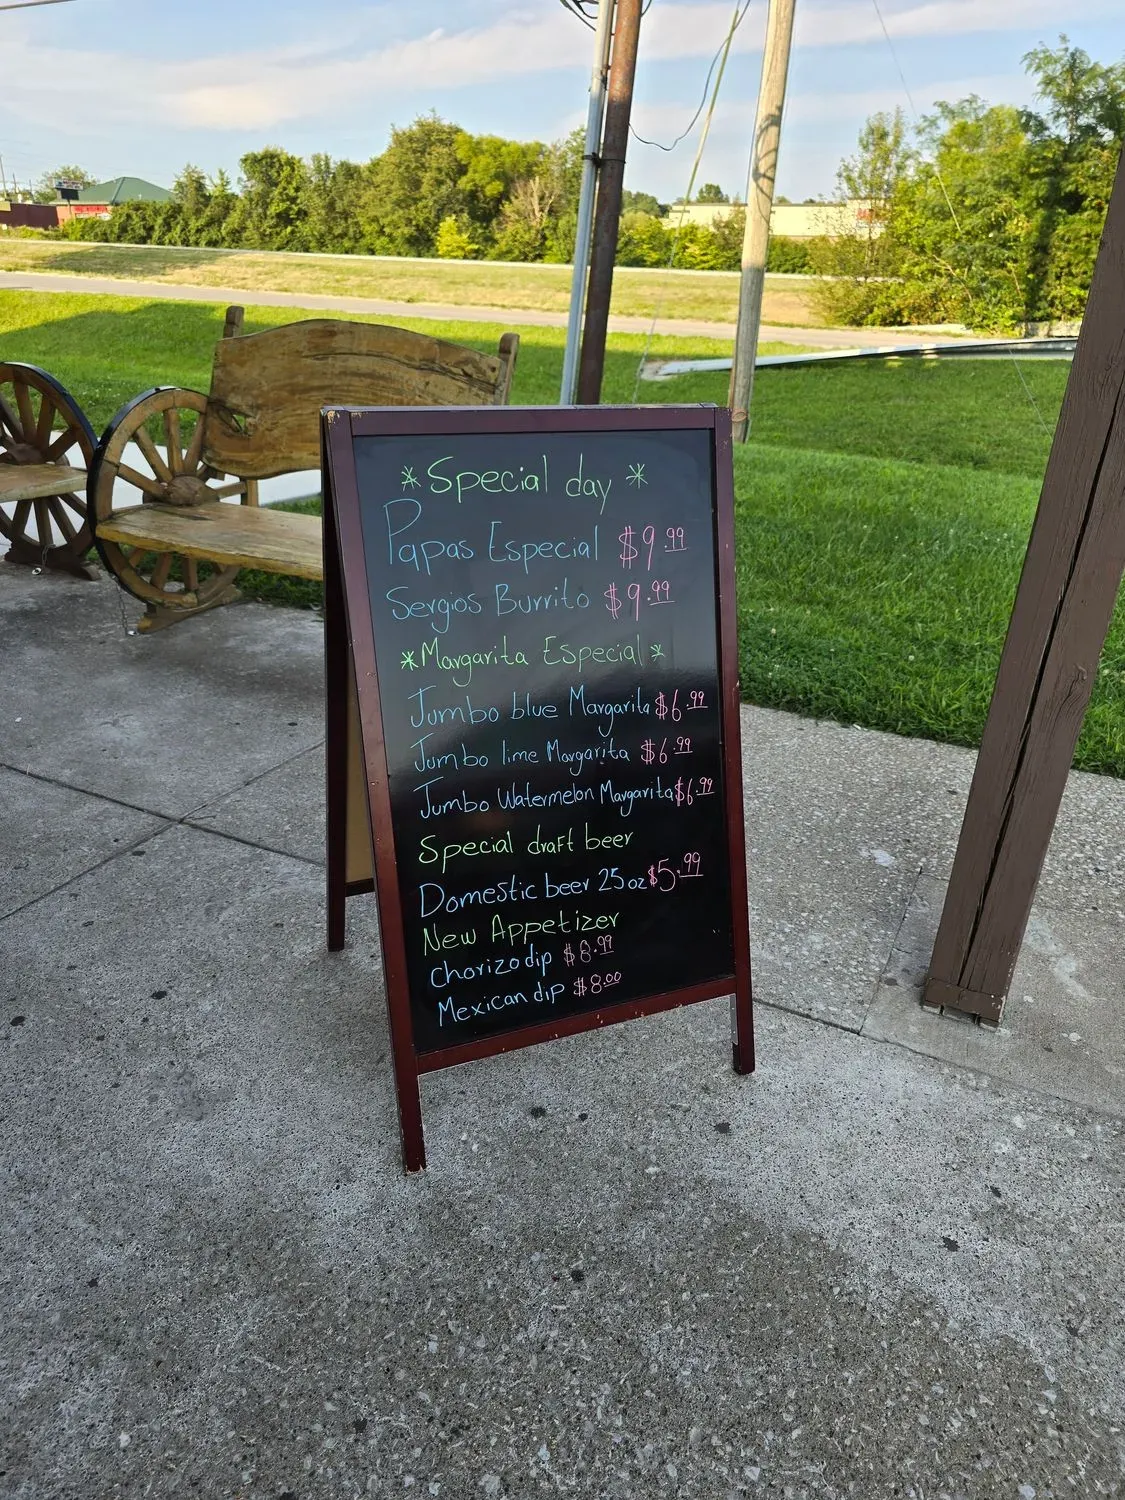 *Special day*
Papas Especial $9.99
Sergios Burrito $9.99
*Margarita Especial*
Jumbo blue Margarita $6.99
Jumbo lime Margarita $6.99
Jumbo Watermelon Margarita $6.99
Special draft beer
Domestic beer 25oz $5.99
New Appetizer
Chorizo dip $8.99
Mexican dip $8.00